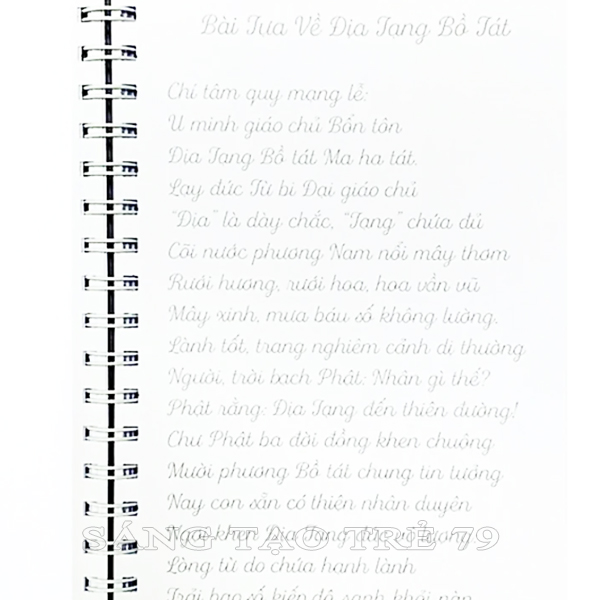 Bài Tựa Về Địa Tạng Bồ Tát
Chí tâm quy mạng lễ:
U minh giáo chủ Bổn tôn
Địa Tạng Bồ tát Ma ha tát.
Lạy đức Từ bi Đại giáo chủ
"Địa" là dày chắc, "Tạng" chứa đủ
Cõi nước phương Nam nổi mây thơm
Rưới hương, rưới hoa, hoa vần vũ
Mây xinh, mưa báu số không lường.
Lành tốt, trang nghiêm cảnh dị thường
Người, trời bạch Phật: Nhân gì thế?
Phật rằng: Địa Tạng đến thiên đường!
Chư Phật ba đời đồng khen chuộng
Mười phương Bồ tát chung tin tưởng
Nay con sẵn có thiện nhân duyên
Ngợi khen Địa Tạng đức vô lượng
SÁNG TẠO TRẺ 79
Lòng từ do chứa hạnh lành
Trải bao số kiếp độ sanh khỏi nàn